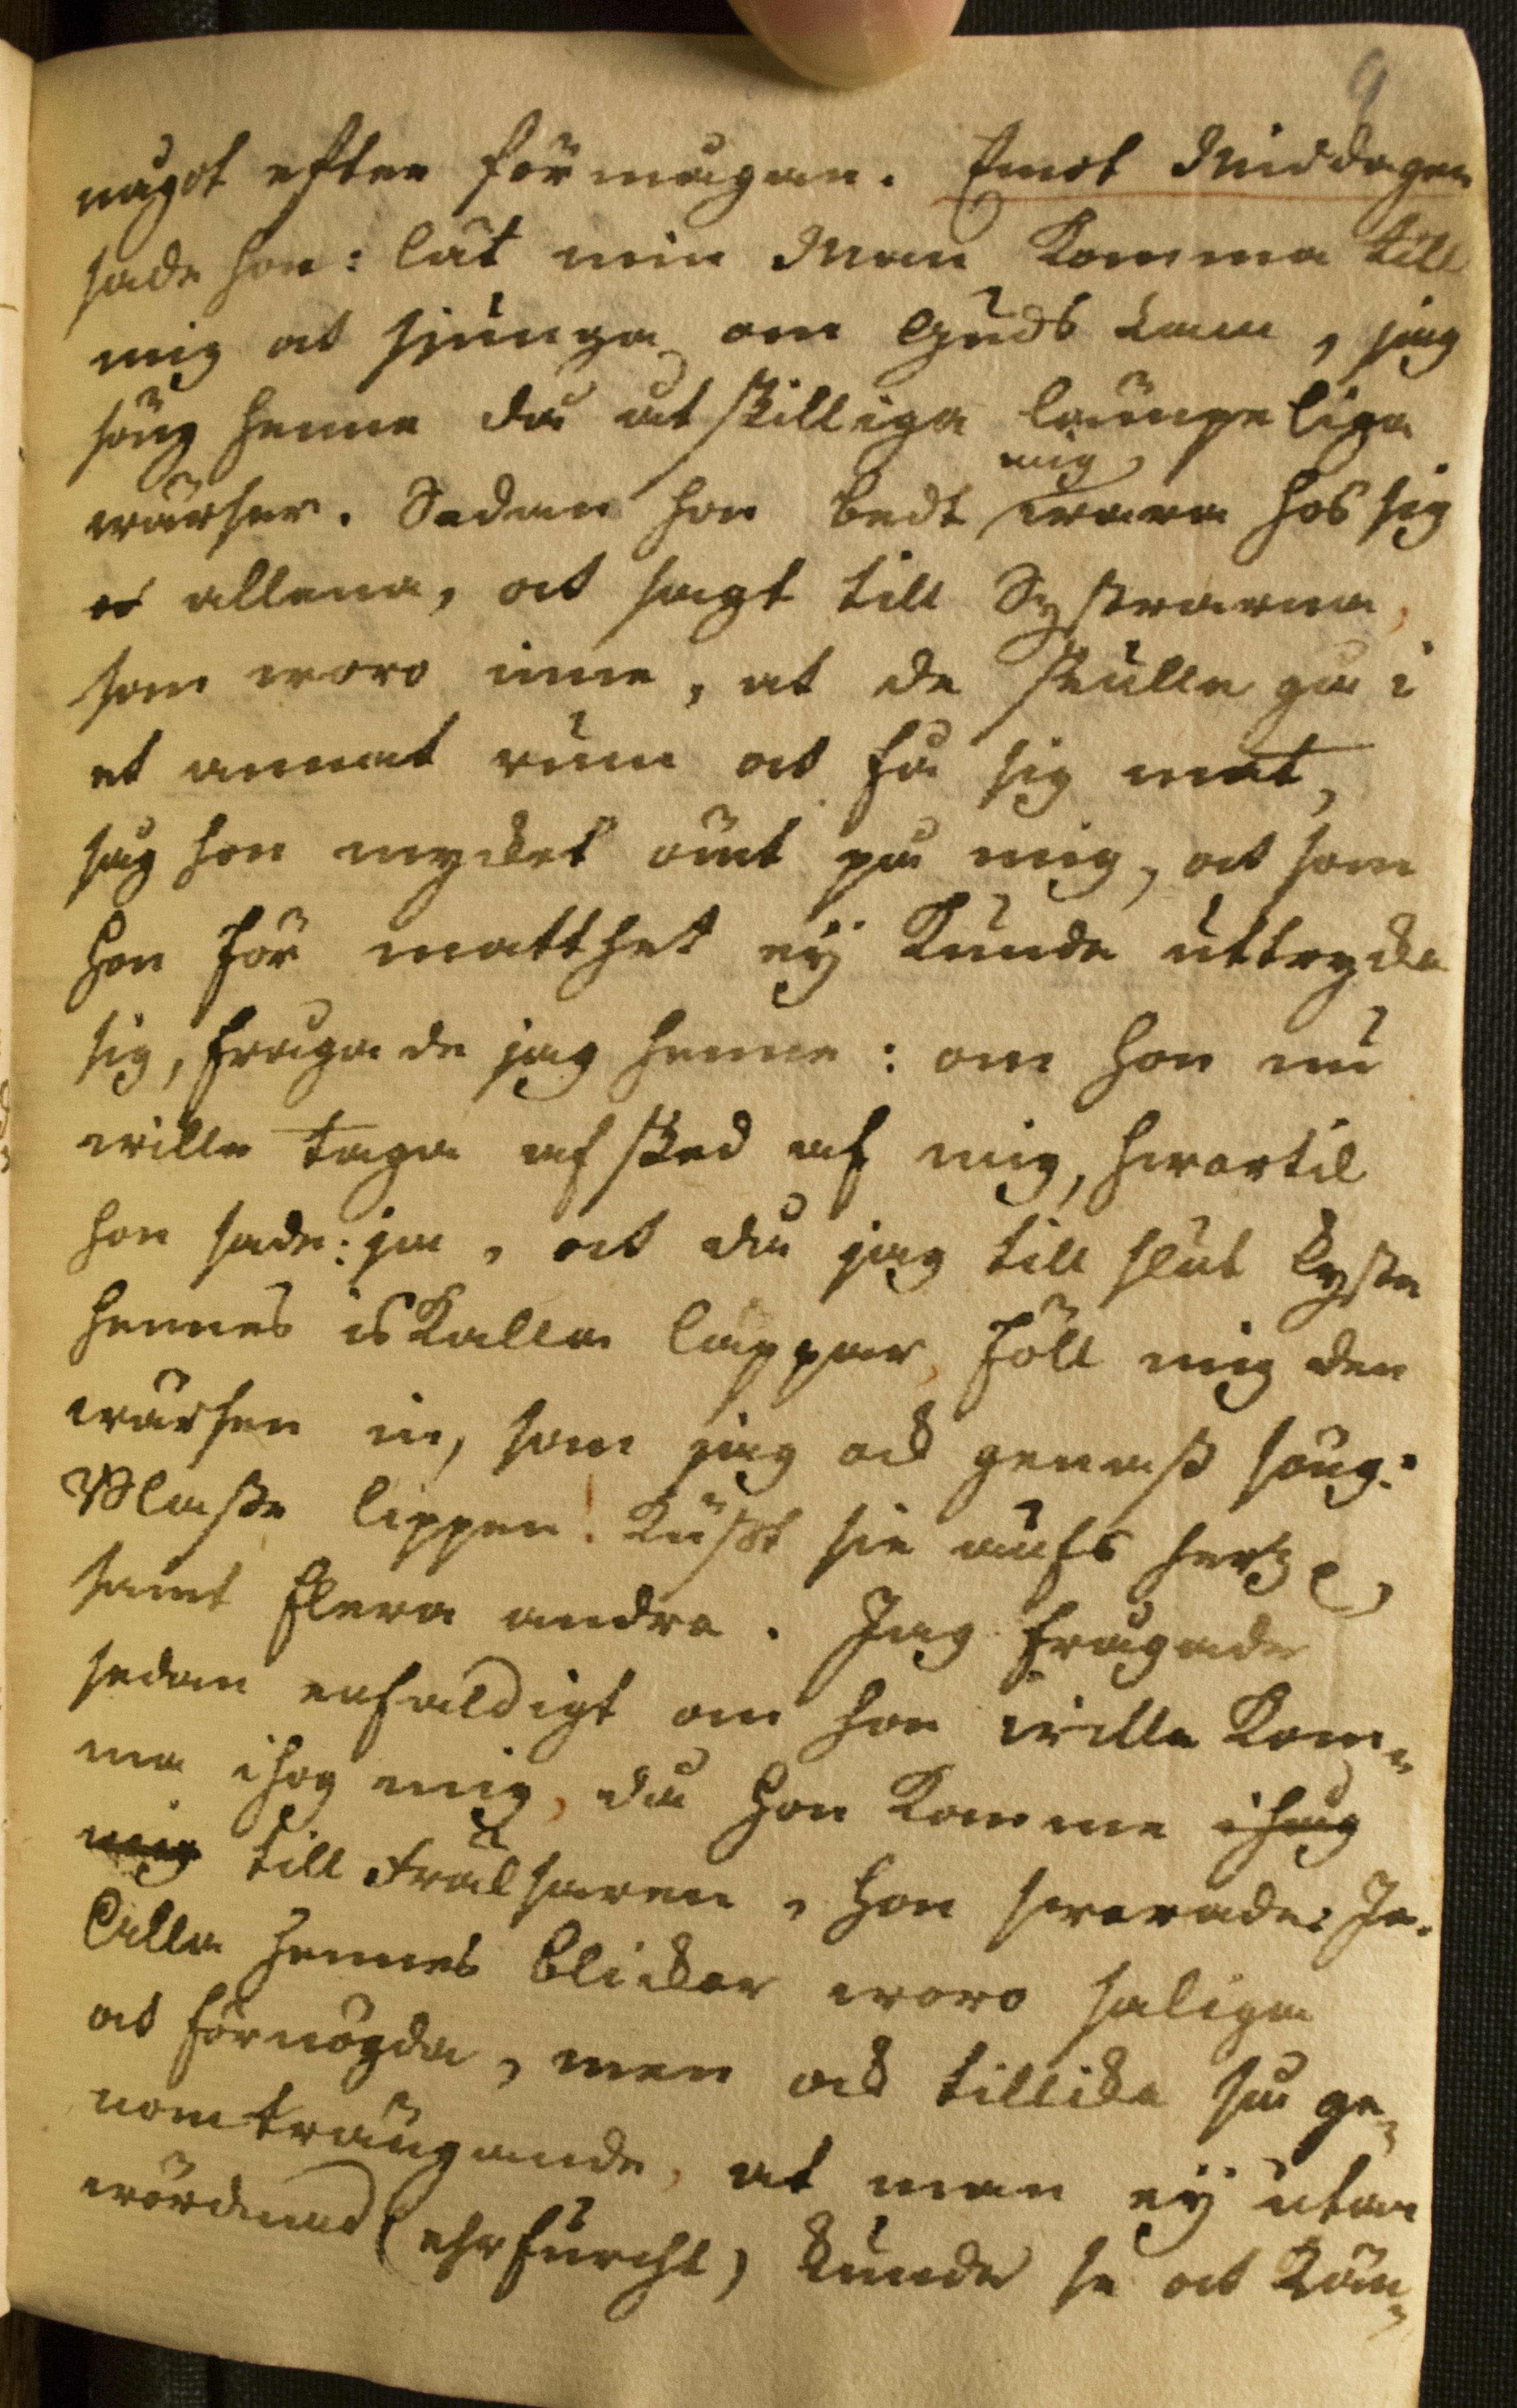 9
något efter förmågan. Emot Middagen
sade hon: låt min Man komma till
mig at sjunga om Guds Lam, jag
söng henne då åtskilliga lämpeliga
wärser. Sedan hon bedt mig wara hos sig
allena, och sagt till Systrarna,
som woro inne, at de skulle gå i
et annat rum at få sig mat,
såg hon mycket ömt på mig, och som
hon för matthet eÿ kunde uttrycka
sig, frågade jag henne: om hon nu
wille taga afsked af mig, hwartil
hon sade: ja, och då jag till slut kyste
hennes iskalla läppar, föll mig den
wärsen in, som jag ock genast söng:
Blasse lippen! Küsst sie aufs hertz
samt flera andra. Jag frågade
sedan enfaldigt om hon wille kom-
ma ihog mig, då hon komme ihog
mig till Frälsaren, hon swarade: Ja.
Alla hennes blickar woro saliga
och förnögda, men ock tillika så ge-
nomträngande, at man eÿ utan
wördnad (ehrfurcht) kunde se och kän-